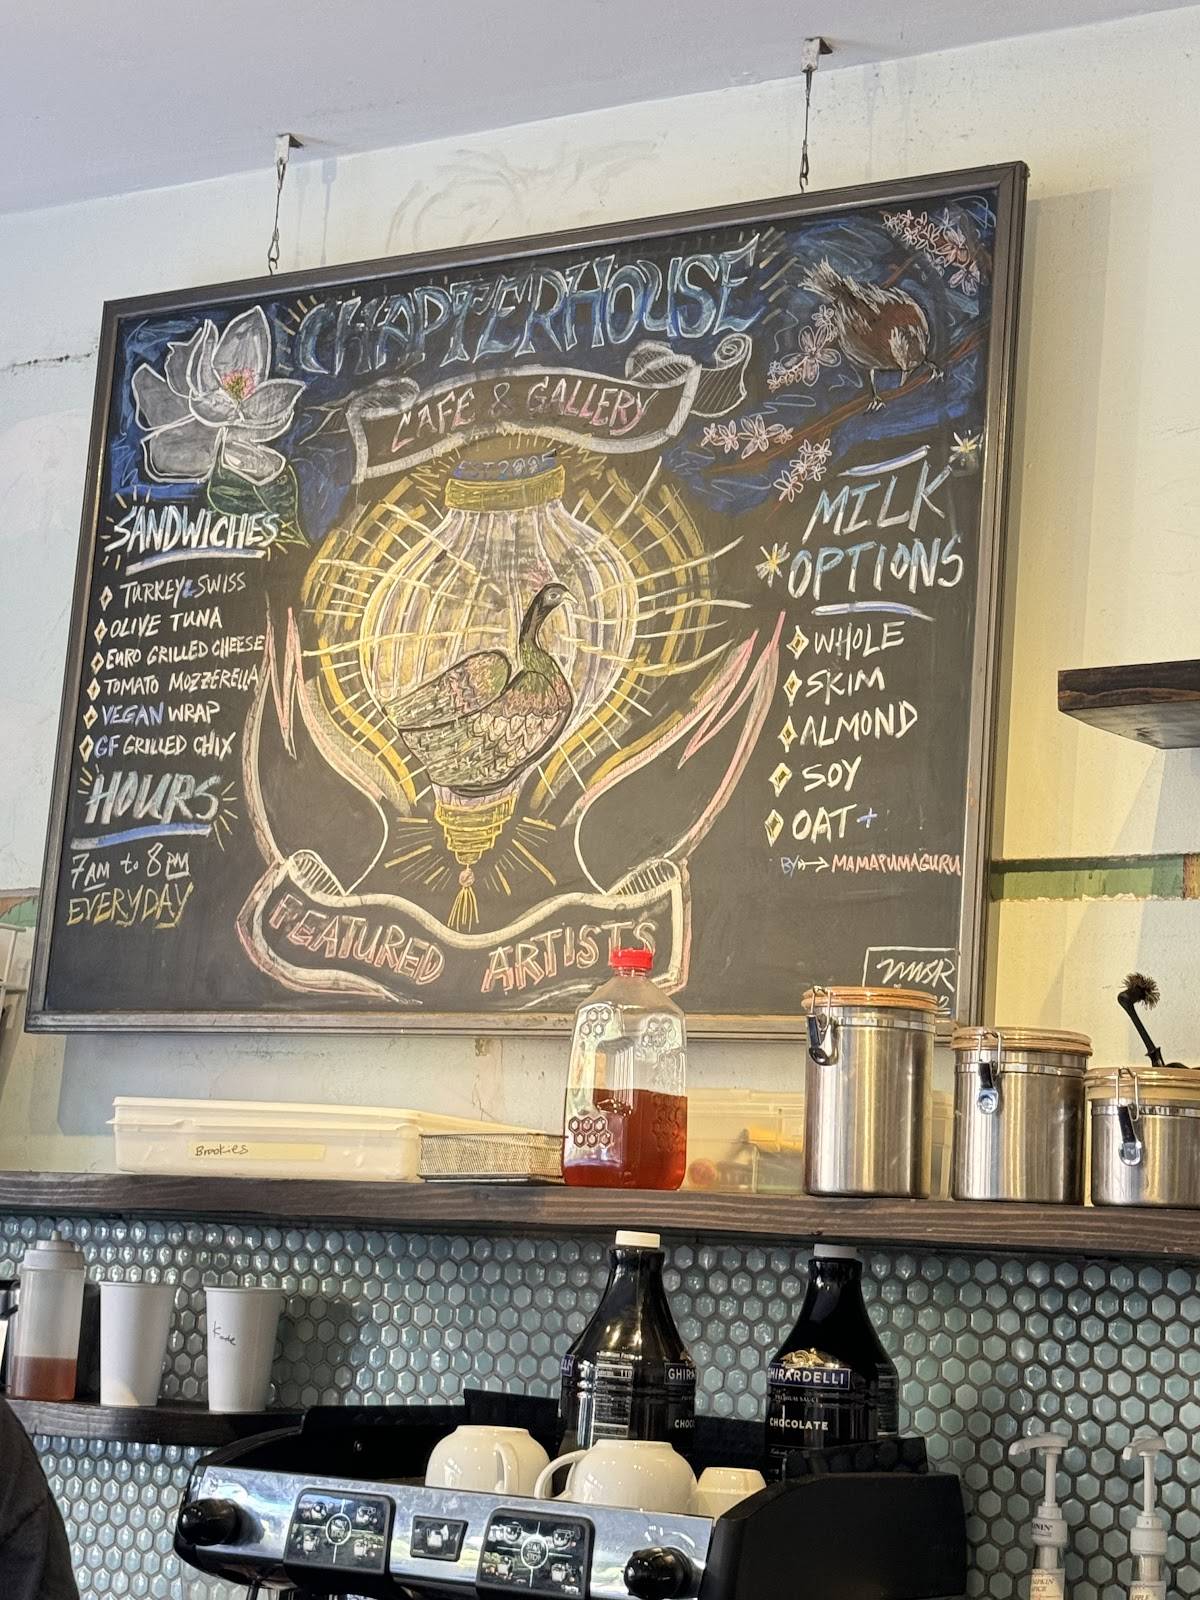 CHAPTERHOUSE
CAFE & GALLERY
SANDWICHES
TURKEY & SWISS
OLIVE TUNA
EURO GRILLED CHEESE
TOMATO MOZZERELLA
VEGAN WRAP
GF GRILLED CHIX
HOURS
7AM to 8PM
EVERYDAY
MILK
OPTIONS
WHOLE
SKIM
ALMOND
SOY
OAT+
BY → MAMAPUMAGURU
FEATURED ARTISTS
Brookies
GHIRARDELLI
PREMIUM SAUCE
CHOCOLATE